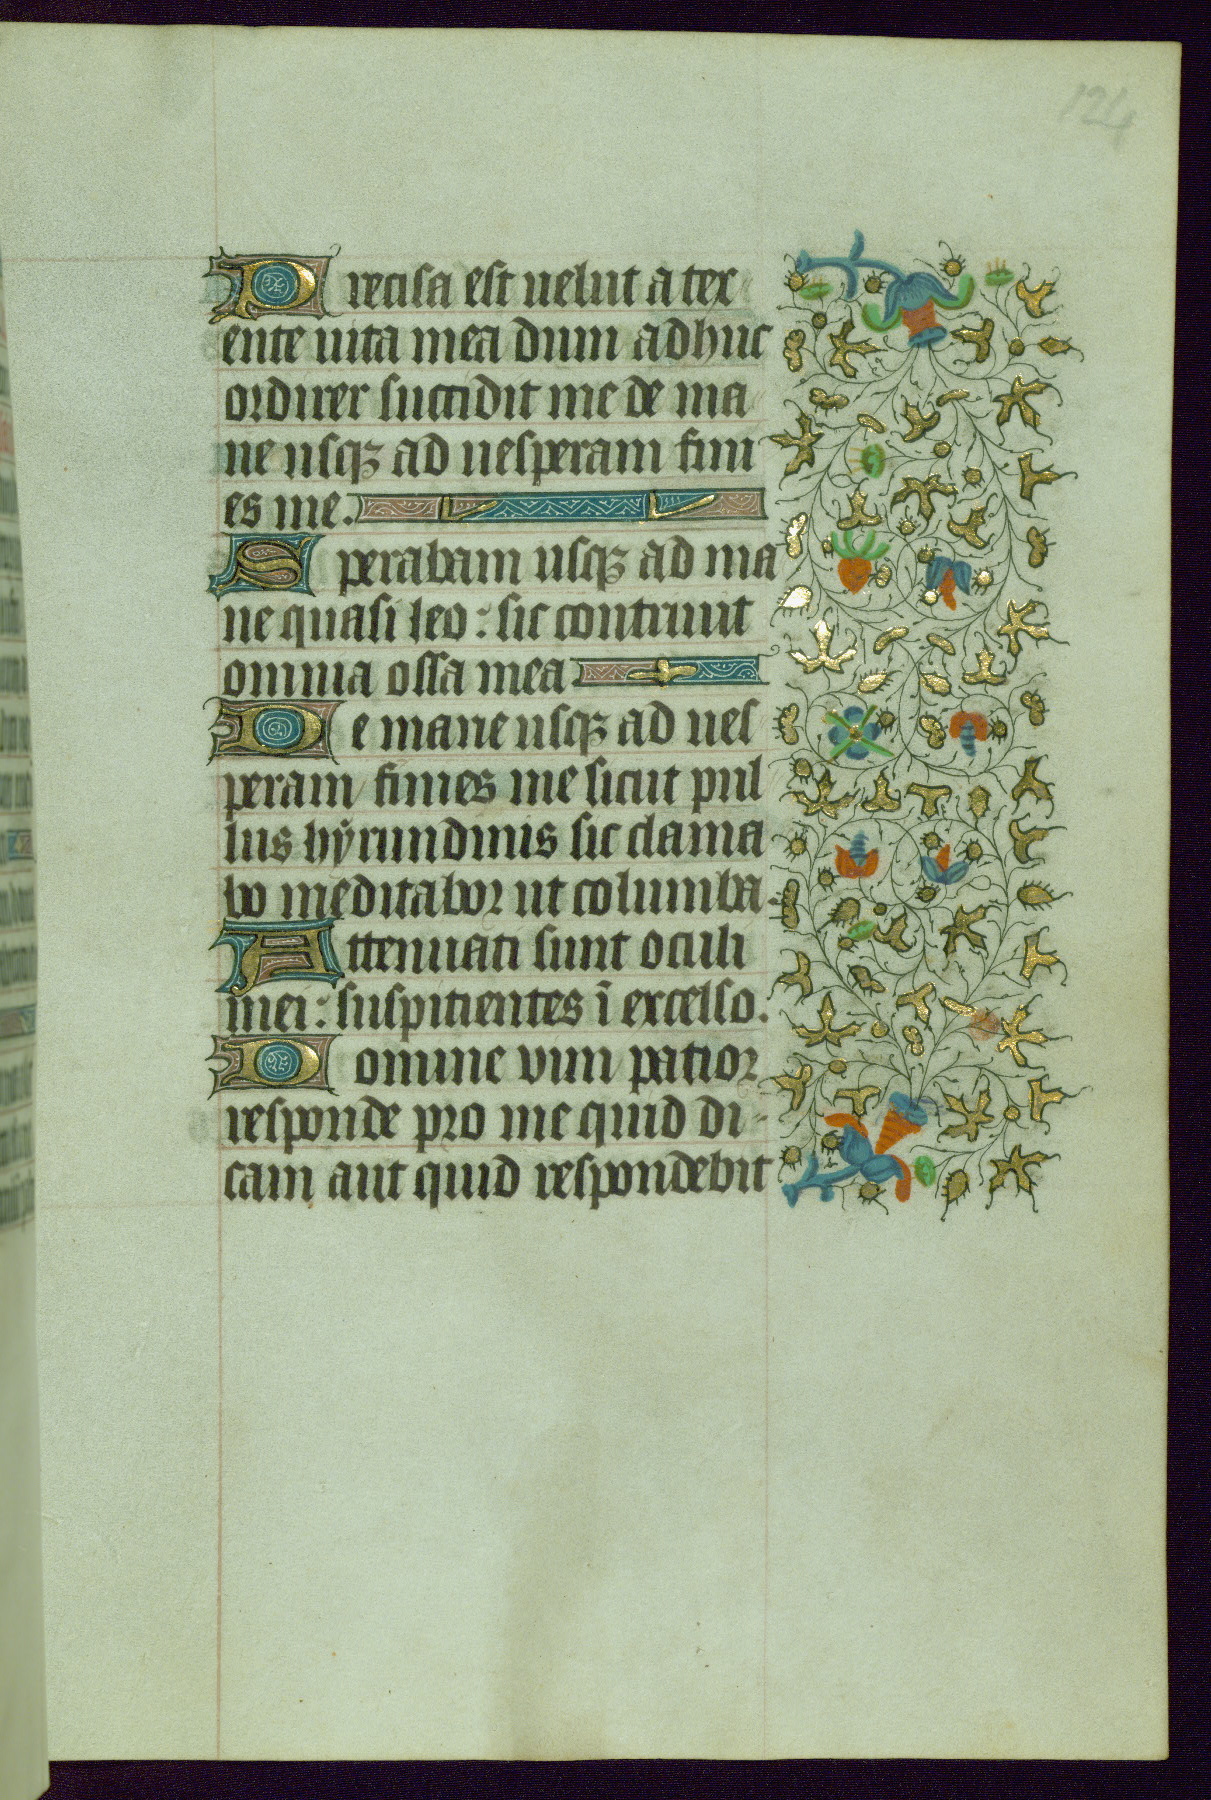 124
Precisa est uelut a tex
ente uita mea dum adhuc
ordirer succidit me de ma
ne usqꝫ ad uesperam fini
es me.
Sperabam usqꝫ ad ma
ne quasi leo : sic contriuit
omnia ossa mea
De mane usqꝫ ad ues
peram finies me sicut pul
lus hÿrundinis sic clama
bo meditabor ut columba.
Attenuati sunt oculi
mei : suspitientes ī excelso.
Domine vim patior
responde pro me quid di-
cam aut quid respondebit